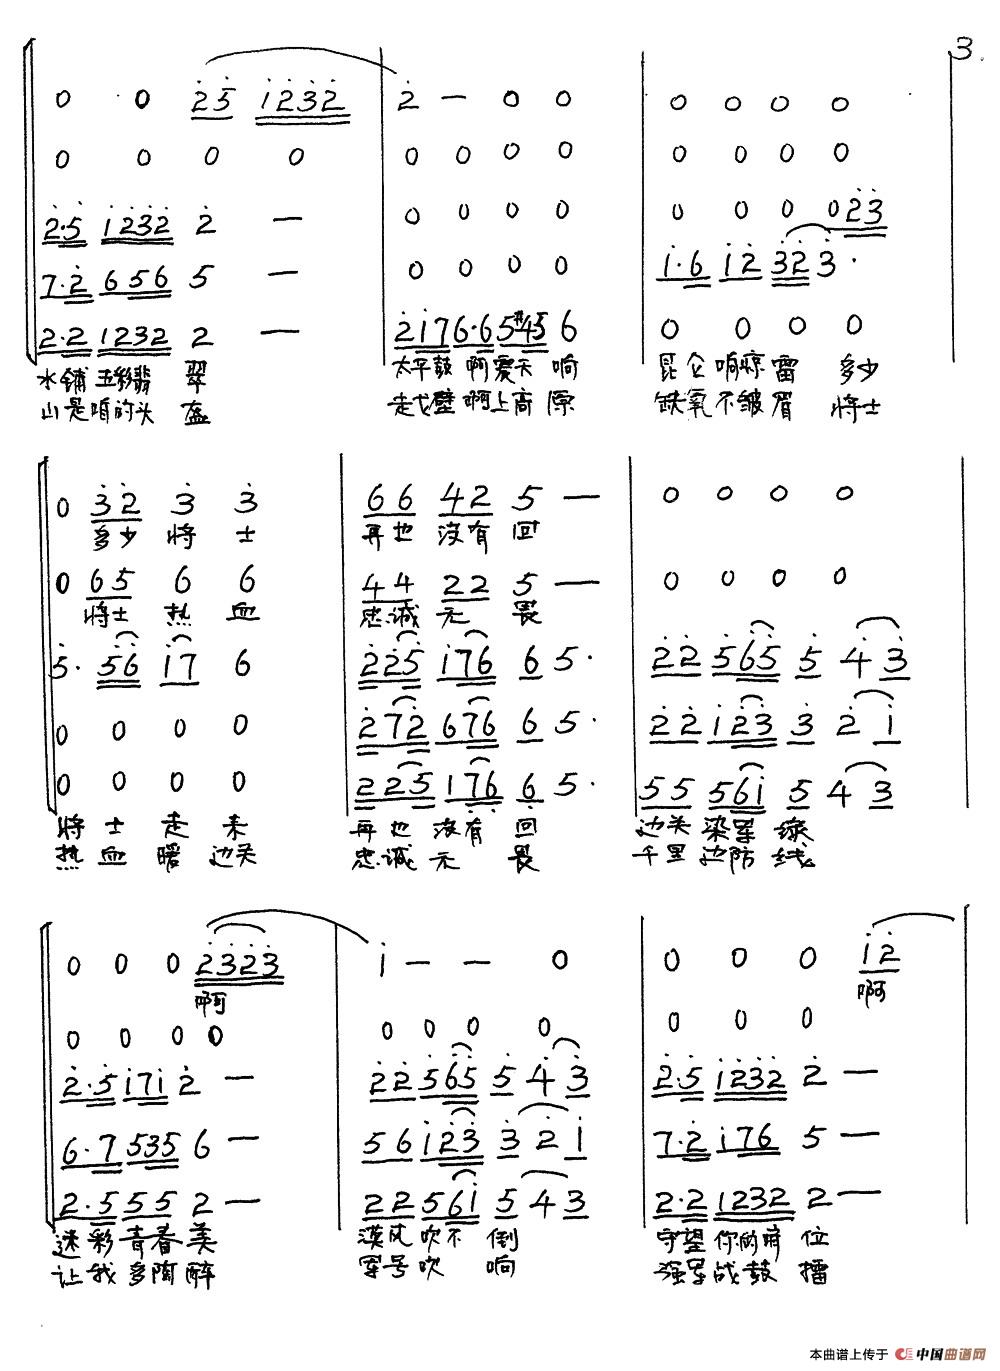 3.
0 0 2̇5̇ 1̇2̇3̇2̇ | 2̇ — 0 0 | 0 0 0 0
0 0 0 0 | 0 0 0 0 | 0 0 0 0
2̇·5̇ 1̇2̇3̇2̇ 2̇ — | 0 0 0 0 | 0 0 0 0 2̇3̇
7·2̇ 656 5 — | 0 0 0 0 | 1̇·6 1̇2̇ 3̇2̇3̇·
2·2 1232 2 — | 2̇1̇76·65#456 | 0 0 0 0
水铺五彩翡 翠 太平鼓 啊震天 响 昆仑响惊雷 多少
山是咱的头 盔 走戈壁 啊上高 原 缺氧不皱眉 将士
0 3̇2̇ 3̇ 3̇ | 66 42 5 — | 0 0 0 0
多少 将 士 再也 没有 回
0 65 6 6 | 44 22 5 — | 0 0 0 0
将士 热 血 忠诚 无 畏
5̇· 5̇6̇ 1̇7 6 | 2̇2̇5̇ 1̇76 6 5· | 2̇2̇ 5̇6̇5̇ 5̇ 4̇ 3̇
0 0 0 0 | 2̇72̇ 676 6 5· | 2̇2̇ 1̇2̇3̇ 3̇ 2̇ 1̇
0 0 0 0 | 225 176 6 5· | 55 561̇ 5 4 3
将 士 走 来 再也 没有 回 边关 染军 绿
热 血 暖 边关 忠诚 无 畏 千里 边防 线
0 0 0 2̇3̇2̇3̇ | 1̇ — — 0 | 0 0 0 1̇2̇
啊 啊
0 0 0 0 | 0 0 0 0 | 0 0 0
2̇·5̇ 1̇71̇ 2̇ — | 2̇2̇ 5̇6̇5̇ 5̇ 4̇ 3̇ | 2̇·5̇ 1̇2̇3̇2̇ 2̇ —
6·7 535 6 — | 56 1̇2̇3̇ 3̇ 2̇ 1̇ | 7·2̇ 1̇76 5 —
2·5 55 2 — | 22 561̇ 5 4 3 | 2·2 1232 2 —
迷彩青春美 漠风吹不 倒 守望你的哨 位
让我多陶醉 军号吹 响 强军战鼓 擂
本曲谱上传于 中国曲谱网